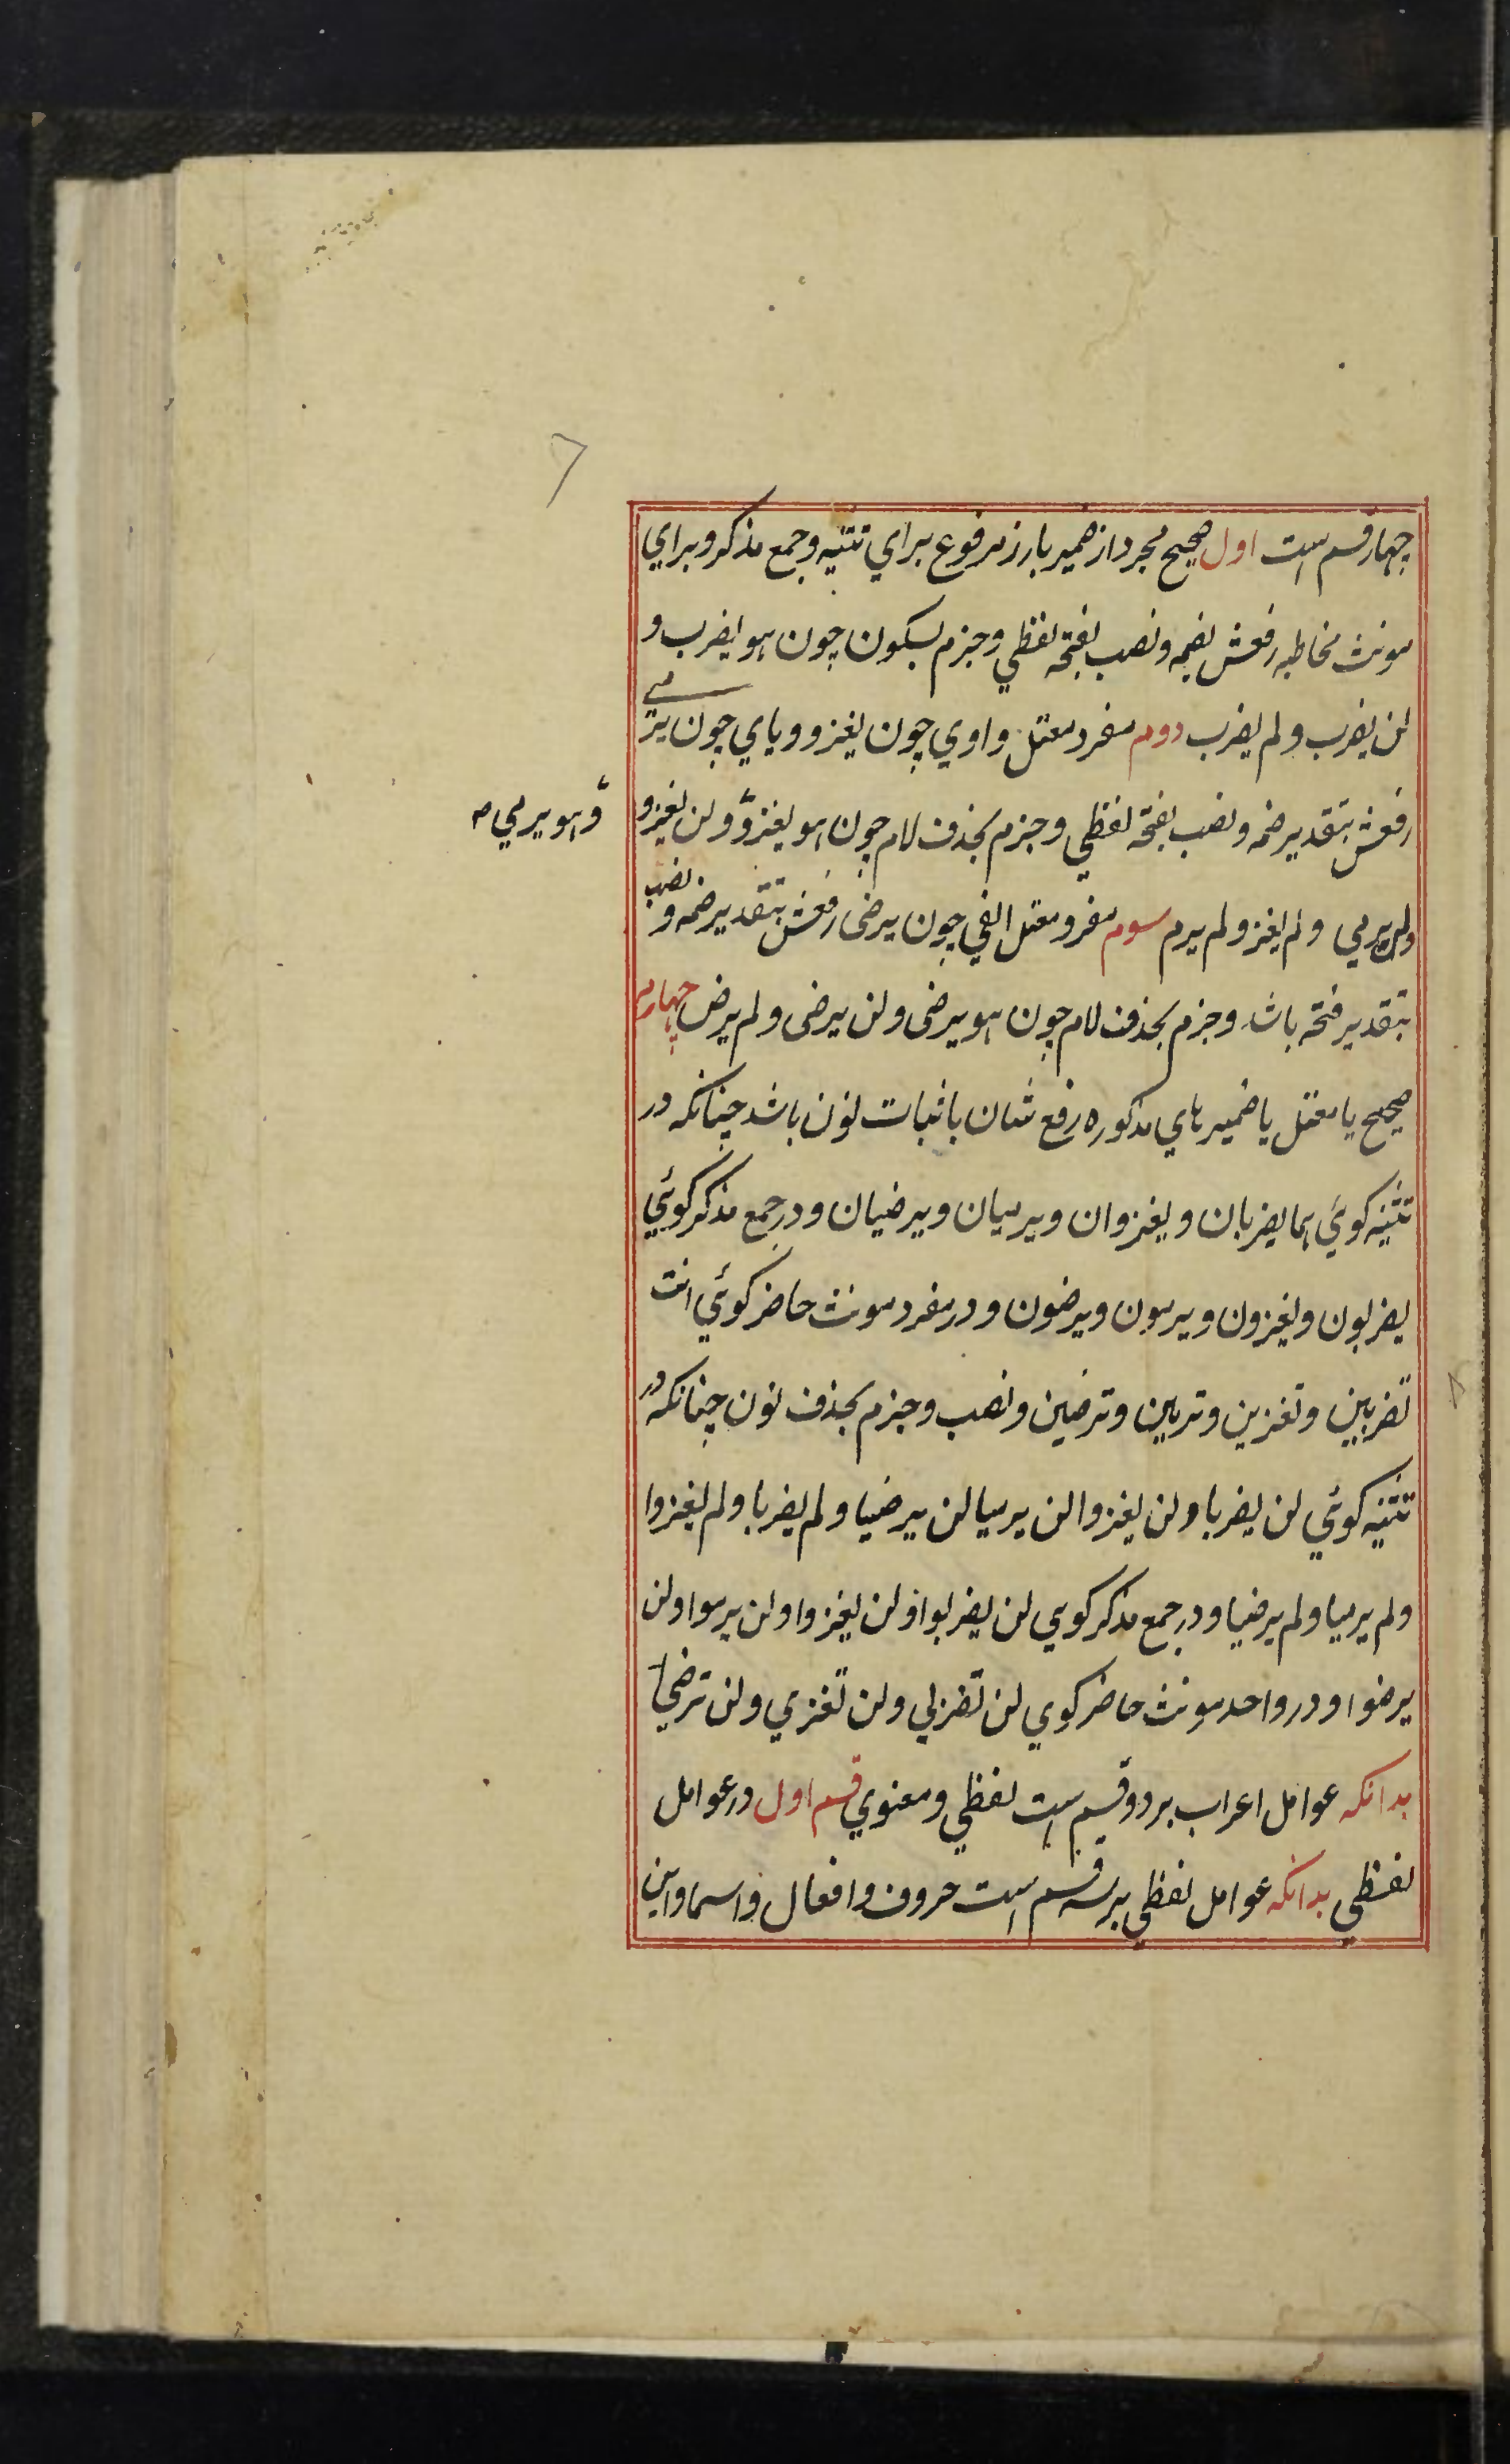 چهار قسم است اول صحیح مجرد از ضمیر بارز مرفوع براي تثنیه و جمع مذکر و براي
مونث مخاطبه رفعش بضمه و نصب بفتحه لفظي و جزم بسکون چون هو یضرب و
لن یضرب و لم یضرب دوم مفرد معتل واوي چون یغزو و یاي چون یرمي
رفعش بتقدیر ضمه و نصب بفتحه لفظي و جزم بحذف لام چون هو یغزو و لن یغزو
و هو یرمي
ولن یرمي و لم یغز و لم یرم سوم مفرد معتل الفي چون یرضی رفعش بتقدیر ضمه و نصب
بتقدیر فتحه باشد و جزم بحذف لام چون هو یرضی و لن یرضی و لم یرض چهارم
صحیح یا معتل یا ضمیرهاي مذکوره رفع شان باثبات نون باشد چنانکه در
تثنیه کوئي هما یضربان و یغزوان و یرمیان و یرضیان و در جمع مذکر کوئي
یضربون و یغزون و یرمون و یرضون و در مفرد مونث حاضر کوئي انت
تضربین و تغزین و ترمین و ترضین و نصب و جزم بحذف نون چنانکه در
تثنیه کوئي لن یضربا و لن یغزوا لن یرمیا لن یرضیا و لم یضربا و لم یغزوا
و لم یرمیا و لم یرضیا و در جمع مذکر کوي لن یضربوا و لن یغزوا و لن یرموا و لن
یرضوا و در واحد مونث حاضر کوي لن تضربي و لن تغزي و لن ترضي
بدانکه عوامل اعراب بر دو قسم است لفظي و معنوي قسم اول در عوامل
لفظي بدانکه عوامل لفظي بر سه قسم است حروف و افعال و اسما و این